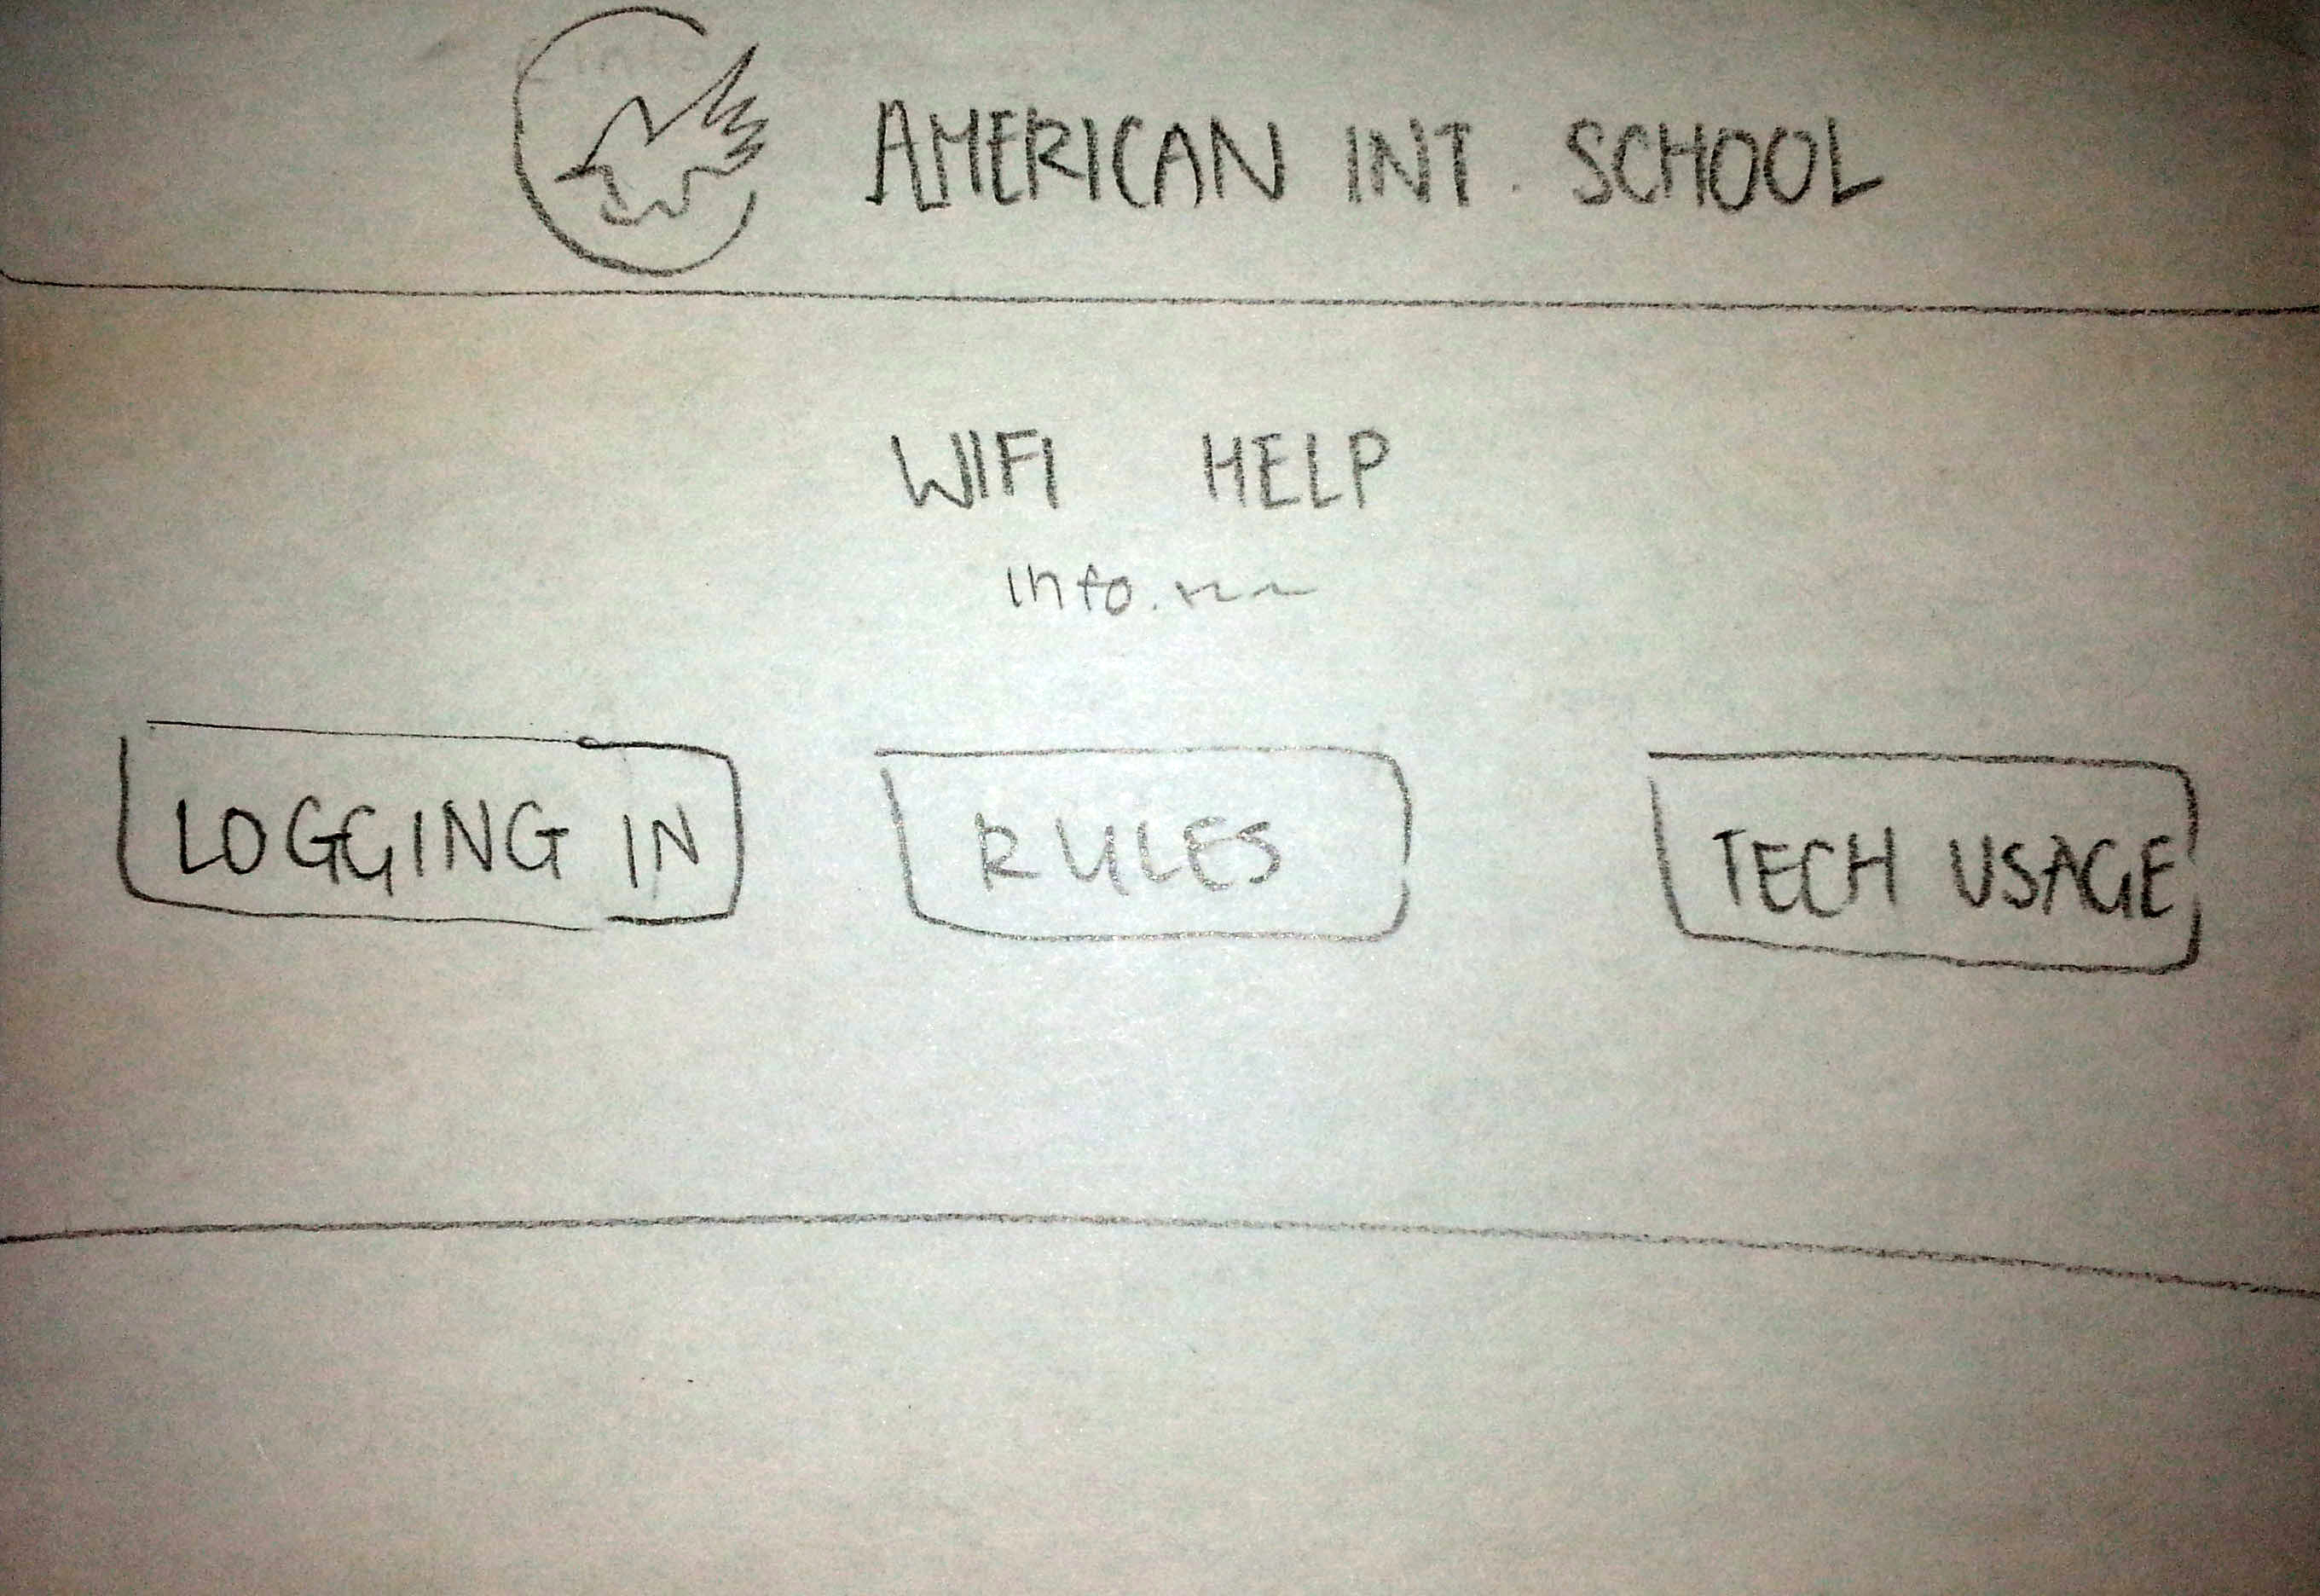 AMERICAN INT. SCHOOL
WIFI HELP
info.
LOGGING IN
RULES
TECH USAGE